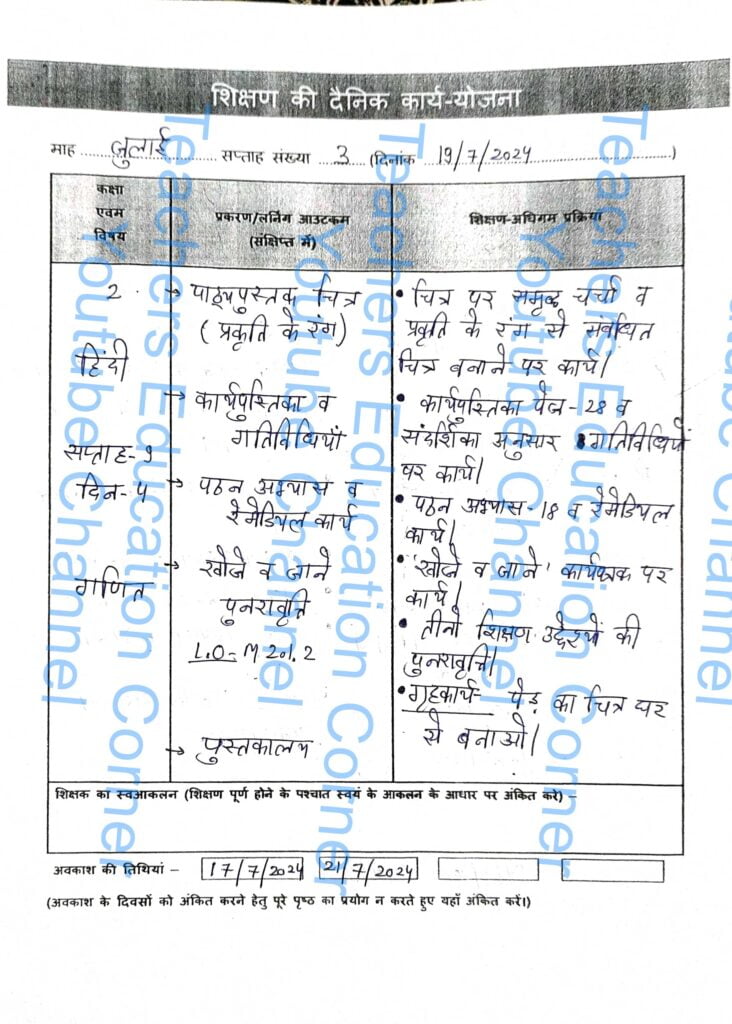 शिक्षण की दैनिक कार्य-योजना
माह जुलाई सप्ताह संख्या 3 (दिनांक 19/7/2024)
कक्षा
एवम
विषय
प्रकरण/लर्निग आउटकम
(संक्षिप्त में)
शिक्षण-अधिगम प्रक्रिया
2
हिंदी
सप्ताह-9
दिन-4
गणित
→ पाठ्यपुस्तक चित्र
(प्रकृति के रंग)
→ कार्यपुस्तिका व
गतिविधियाँ
→ पठन अभ्यास व
रेमेडियल कार्य
→ खोजे व जाने
पुनरावृत्ति
L.O- M 201.2
→ पुस्तकालय
• चित्र पर समृद्ध चर्चा व
प्रकृति के रंग से संबंधित
चित्र बनाने पर कार्य।
• कार्यपुस्तिका पेज-28 व
संदर्शिका अनुसार गतिविधियों
पर कार्य।
• पठन अभ्यास-18 व रेमेडियल
कार्य।
• 'खोजे व जाने' कार्यपत्रक पर
कार्य।
• तीनो शिक्षण उद्देश्यों की
पुनरावृत्ति।
• गृहकार्य- पेड़ का चित्र घर
से बनाओ।
शिक्षक का स्वआकलन (शिक्षण पूर्ण होने के पश्चात स्वयं के आकलन के आधार पर अंकित करे) –
अवकाश की तिथियां – 17/7/2024 21/7/2024
(अवकाश के दिवसों को अंकित करने हेतु पूरे पृष्ठ का प्रयोग न करते हुए यहाँ अंकित करें।)
Teachers Education Corner
Youtube Channel
Teachers Education Corner
Youtube Channel
Teachers Education Corner
Youtube Channel